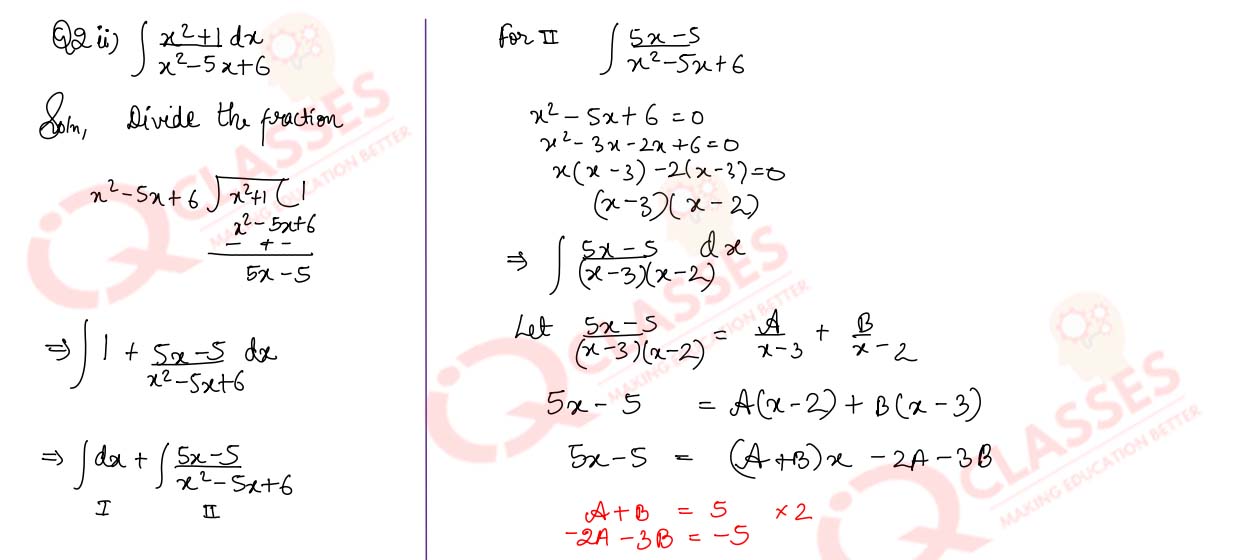 Q2 ii) ∫ (x²+1)/(x²-5x+6) dx
Soln, Divide the fraction
x²-5x+6 ) x²+1 ( 1
x²-5x+6
- + -
5x-5
⇒ ∫ 1 + (5x-5)/(x²-5x+6) dx
⇒ ∫ dx + ∫ (5x-5)/(x²-5x+6)
I II
For II ∫ (5x-5)/(x²-5x+6)
x²-5x+6 = 0
x²-3x-2x+6=0
x(x-3)-2(x-3)=0
(x-3)(x-2)
⇒ ∫ (5x-5)/((x-3)(x-2)) dx
Let (5x-5)/((x-3)(x-2)) = A/(x-3) + B/(x-2)
5x-5 = A(x-2) + B(x-3)
5x-5 = (A+B)x -2A-3B
A+B = 5 ×2
-2A-3B = -5
iQ CLASSES
MAKING EDUCATION BETTER
iQ CLASSES
MAKING EDUCATION BETTER
iQ CLASSES
MAKING EDUCATION BETTER